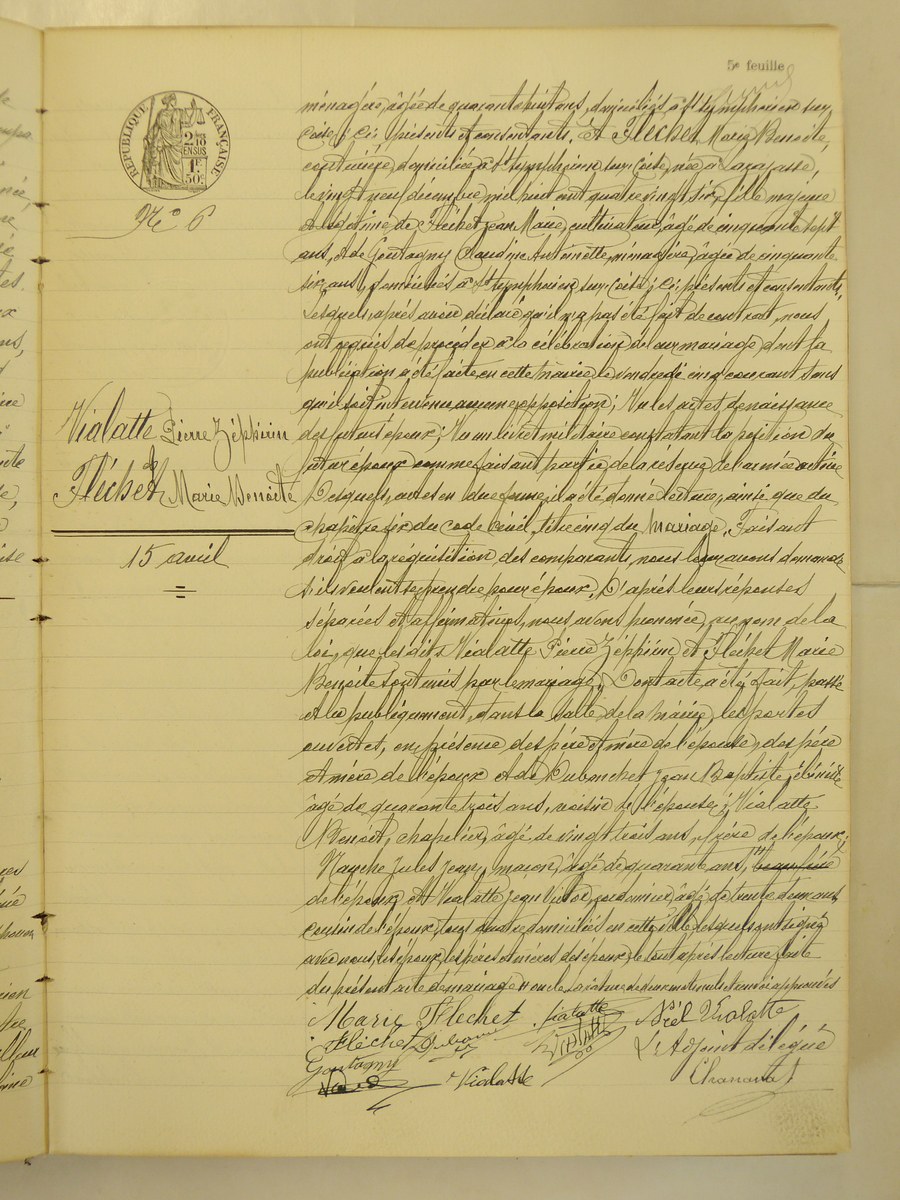 5e feuille
RÉPUBLIQUE FRANÇAISE
2 2/10 EN SUS
1F 50c
N° 6
ménagère, âgée de quarante huit ans, domiciliés à St Symphorien sur
Coise, ici présents et consentants. Et Fléchet Marie Benoîte,
couturière, domiciliée à St Symphorien sur Coise, née à Larajasse,
le vingt neuf décembre mil huit cent quatre vingt six, fille majeure
et légitime de Fléchet Jean Marie, cultivateur, âgé de cinquante sept
ans, et de Goutagny Claudine Antoinette, ménagère, âgée de cinquante
six ans, domiciliés à St Symphorien sur Coise, ici présents et consentants,
Lesquels, après avoir déclaré qu'il n'a pas été fait de contrat, nous
ont requis de procéder à la célébration de leur mariage dont la
publication a été faite en cette Mairie, le Vendredi cinq courant sans
qu'il soit intervenu aucune opposition; Vu les actes de naissance
des futurs époux; Vu un livret militaire constatant la position du
futur époux comme faisant partie de la réserve de l'armée active
Desquels, actes en due forme, il a été donné lecture, ainsi que du
chapitre six du Code Civil, titre cinq du Mariage, Faisant
droit à la réquisition des comparants, nous leur avons demandé
s'ils veulent se prendre pour époux. D'après leurs réponses
séparées et affirmatives, nous avons prononcé, au nom de la
loi, que les dits Vialatte Pierre Zéphirin et Fléchet Marie
Benoîte sont unis par le mariage. Dont acte a été fait, passé
et lu publiquement, dans la salle de la Mairie, les portes
ouvertes, en présence des père et mère de l'épouse, des père
et mère de l'époux et de Dubanchet Jean Baptiste, ébéniste
âgé de quarante trois ans, voisin de l'épouse; Vialatte
Benoît, chapelier, âgé de vingt trois ans, frère de l'époux;
Jules Jean, maçon, âgé de quarante ans,
de l'époux et Vialatte Jean Victor, cordonnier, âgé de trente deux ans,
cousin de l'époux, tous quatre domiciliés en cette ville, lesquels ont signé
avec nous, les époux, les pères et mères des époux, le tout après lecture faite
du présent acte de mariage
Vialatte Pierre Zéphirin
&
Fléchet Marie Benoîte
15 avril
Marie Flechet Vialatte Noël Vialatte
Fléchet Vialatte L'Adjoint délégué
Goutagny
Vialatte